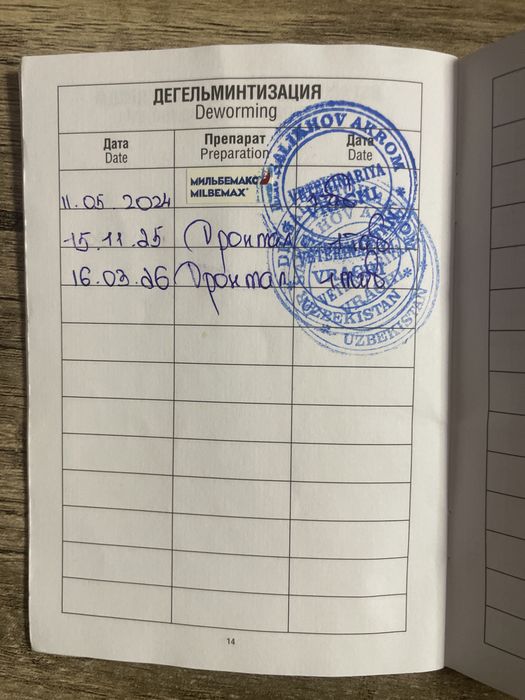 ДЕГЕЛЬМИНТИЗАЦИЯ
Deworming
Дата
Date
Препарат
Preparation
Дата
Date
МИЛЬБЕМАКС
MILBEMAX®
11.05.2024
15.11.25 Дронтал 1 таб
16.03.26 Дронтал 1 таб
ALIKHOV AKROM
VETERINARIYA
UZBEKISTAN
UZBEKISTAN
14